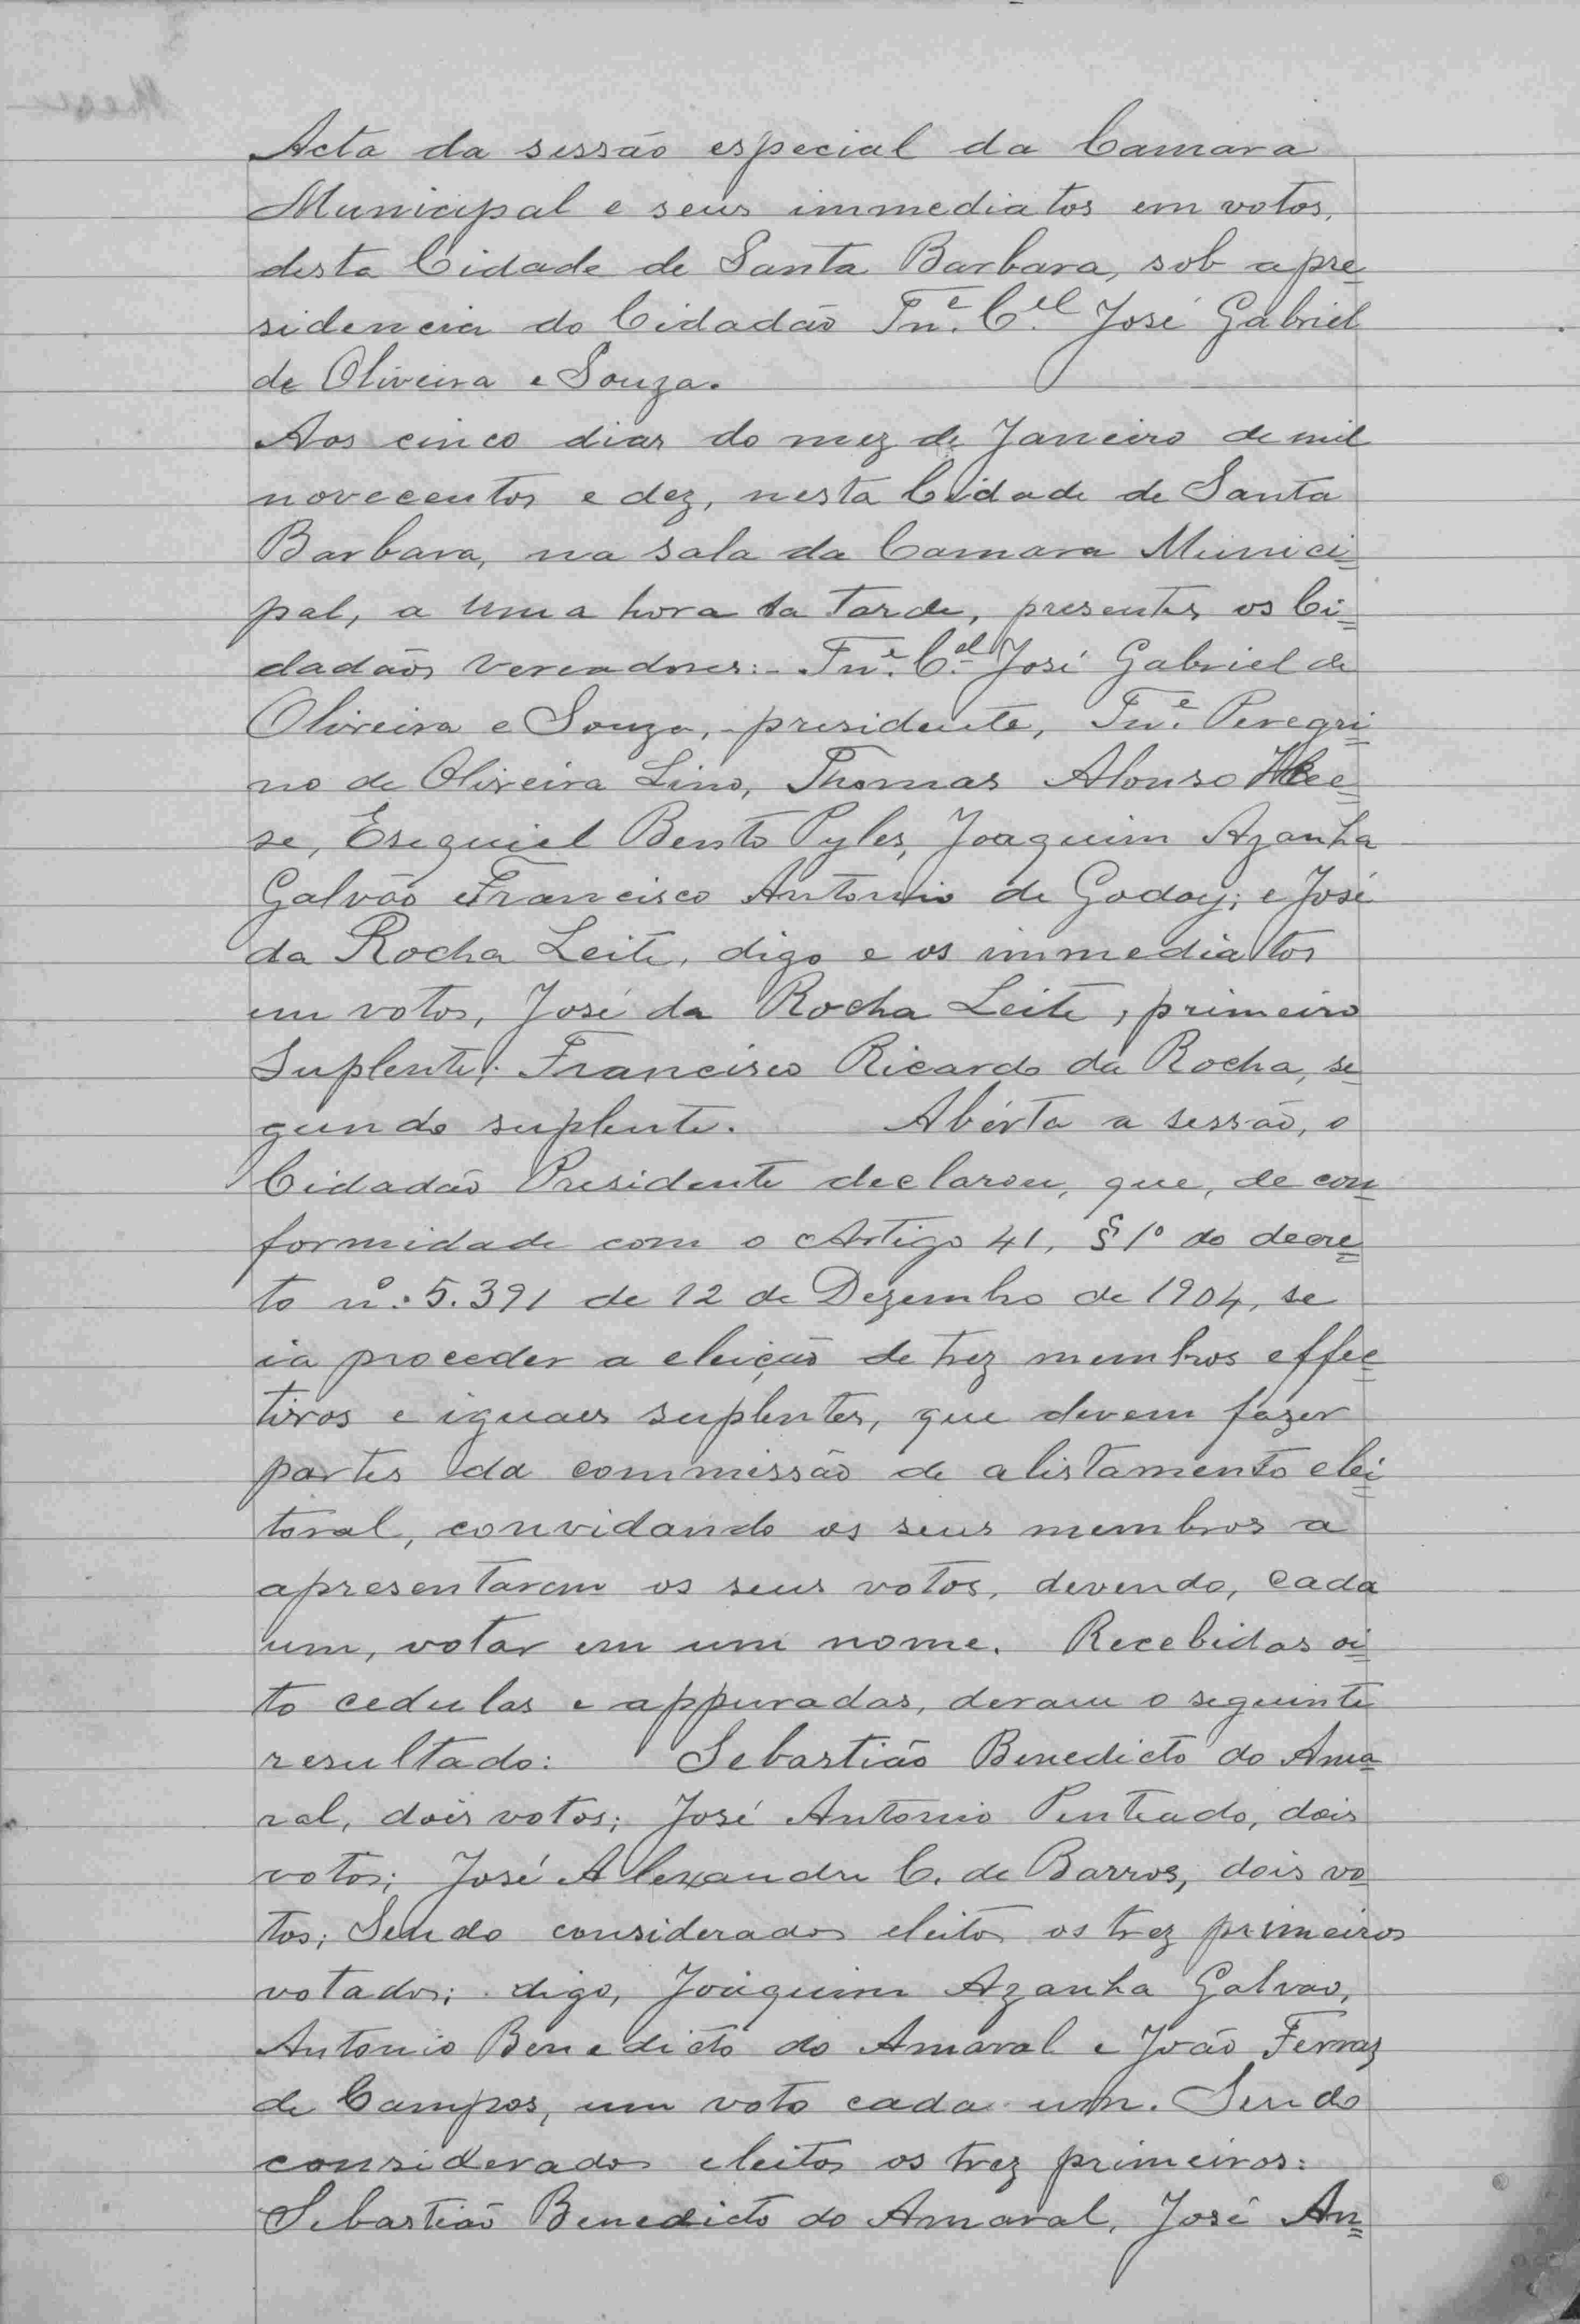 Acta da sessão especial da Camara
Municipal e seus immediatos em votos,
desta Cidade de Santa Barbara, sob a pre=
sidencia do Cidadão Tn.e C.el José Gabriel
de Oliveira e Souza.
Aos cinco dias do mez de Janeiro de mil
novecentos e dez, nesta Cidade de Santa
Barbara, na sala da Camara Munici=
pal, a uma hora da tarde, presentes os Ci=
dadãos Vereadores:- Tn.e C.el José Gabriel de
Oliveira e Souza, presidente, Tn.e Peregri=
no de Oliveira Lino, Thomas Alonso Kee=
se, Esequiel Bento Pyles, Joaquim Azanha
Galvão e Francisco Antonio de Godoy; e José
da Rocha Leite, digo e os immediatos
em votos, José da Rocha Leite, primeiro
Suplente; Francisco Ricardo da Rocha, se=
gundo suplente. Abérta a sessão, o
Cidadão Presidente declarou, que, de con=
formidade com o Artigo 41, § 1º do decre=
to nº. 5.391 de 12 de Dezembro de 1904, se
ia proceder a eleição de trez membros effec=
tivos e iguaes suplentes, que devem fazer
partes da commissão de alistamento elei=
toral, convidando os seus membros a
apresentarem os seus votos, devendo, cada
um, votar em um nome. Recebidas oi=
to cedulas e appuradas, deram o seguinte
resultado: Sebastião Benedicto do Ama=
ral, dois votos; José Antonio Penteado, dois
votos; José Alexandre C. de Barros, dois vo=
tos; Sendo considerados eleitos os trez primeiros
votados; digo, Joaquim Azanha Galvao,
Antonio Benedicto do Amaral e João Ferraz
de Campos, um voto cada um. Sendo
considerados eleitos os trez primeiros:
Sebastião Benedicto do Amaral, José An=